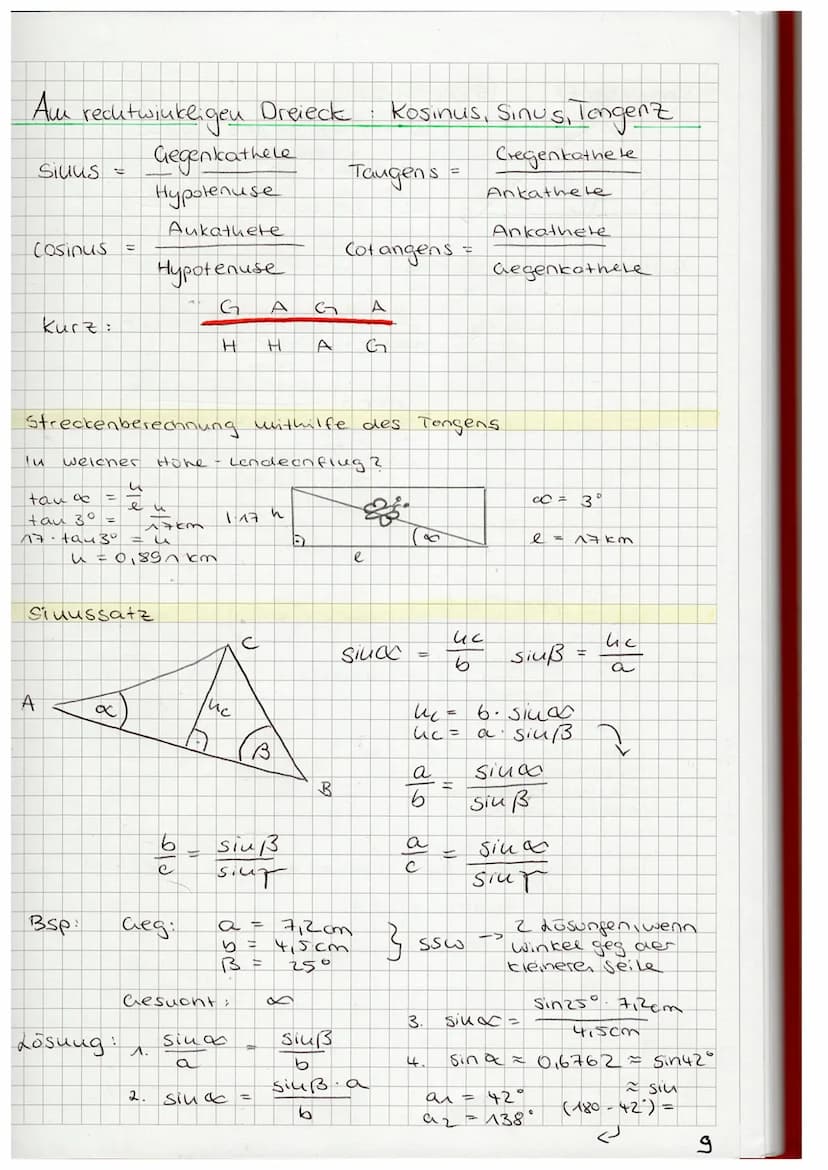 Am rechtwinkeligen Dreieck : Kosinus, Sinus, Tangenz
Sinus = Gegenkathete / Hypotenuse
Tangens = Gegenkathete / Ankathete
Cosinus = Ankathete / Hypotenuse
Cotangens = Ankathete / Gegenkathete
Kurz:
G A G A
H H A G
Streckenberechnung mithilfe des Tangens
In welcher Höhe - Landeanflug?
tan α = h/e
tan 3° = h/17km |·17
17 · tan 3° = h
h = 0,891 km
h
α
e
α = 3°
e = 17 km
Sinussatz
A α hc C β B
sin α = hc/b sin β = hc/a
hc = b · sin α
hc = a · sin β
a/b = sin α/sin β
b/c = sin β/sin γ
a/c = sin α/sin γ
Bsp: Geg: a = 7,2cm
b = 4,5cm
β = 25°
} SSW → 2 Lösungen, wenn
Winkel geg der
kleineren Seite
Gesucht: α
Lösung: 1. sin α/a = sin β/b
2. sin α = sin β · a/b
3. sin α = sin 25° · 7,2cm/4,5cm
4. sin α ≈ 0,6762 ≈ sin 42°
≈ sin
(180 - 42°) =
a1 = 42°
a2 = 138°
9